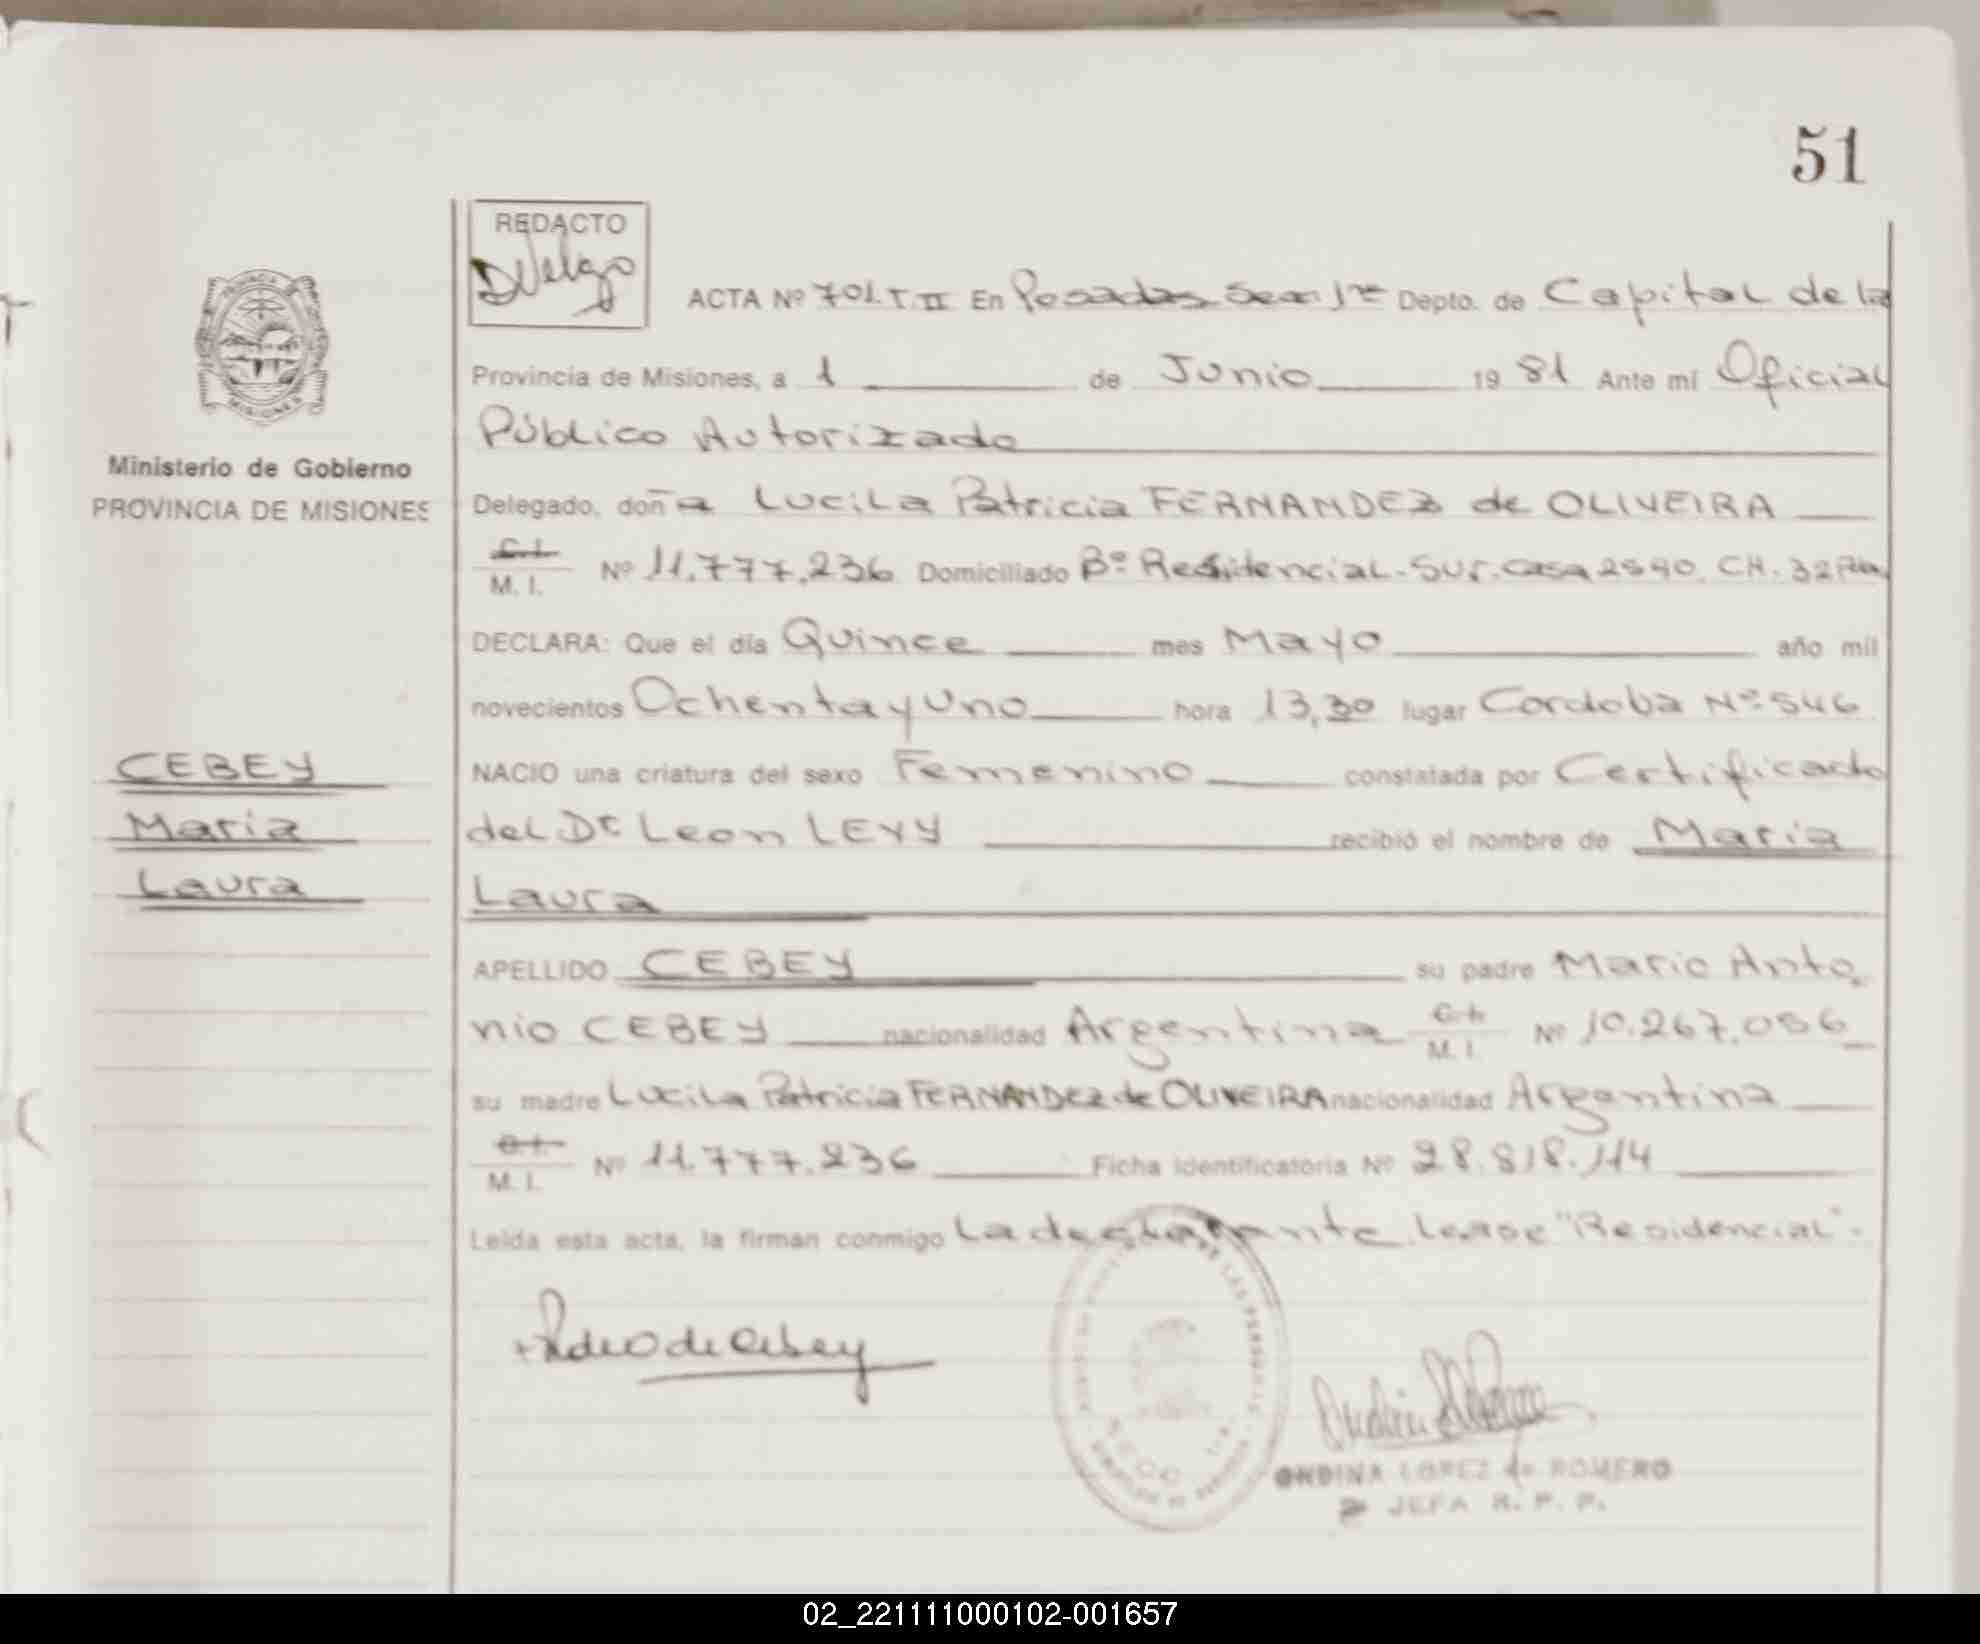 51
REDACTO
ACTA Nº 701.T.II En Posadas Secc 1ra Depto. de Capital de la
Provincia de Misiones, a 1 de Junio 19 81 Ante mí Oficial
Público Autorizado
Ministerio de Gobierno
PROVINCIA DE MISIONES
Delegado, doña Lucila Patricia FERNANDEZ de OLIVEIRA
C.I.
M. I. Nº 11.777.236 Domiciliado Bº Residencial-Sur. casa 2590. CH. 32
DECLARA: Que el día Quince mes Mayo año mil
novecientos Ochenta y Uno hora 13,30 lugar Cordoba Nº 546
CEBEY
NACIO una criatura del sexo Femenino constatada por Certificado
Maria
del Dr Leon LEVY recibió el nombre de Maria
Laura
Laura
APELLIDO CEBEY su padre Mario Anto
nio CEBEY nacionalidad Argentina C.I. M. I. Nº 10.267.056
su madre Lucila Patricia FERNANDEZ de OLIVEIRA nacionalidad Argentina
C.I.
M. I. Nº 11.777.236 Ficha identificatoria Nº 28.818.114
Leída esta acta, la firman conmigo La declarante. Lease "Residencial".
ONDINA LOPEZ de ROMERO
JEFA R. P. P.
02_221111000102-001657